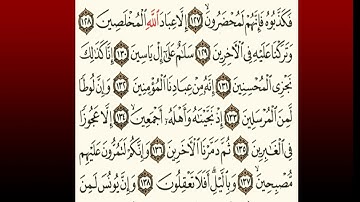 فَكَذَّبُوهُ فَإِنَّهُمْ لَمُحْضَرُونَ ١٢٧ إِلَّا عِبَادَ اللَّهِ الْمُخْلَصِينَ ١٢٨
وَتَرَكْنَا عَلَيْهِ فِي الْآخِرِينَ ١٢٩ سَلَامٌ عَلَىٰ إِلْ يَاسِينَ ١٣٠ إِنَّا كَذَٰلِكَ
نَجْزِي الْمُحْسِنِينَ ١٣١ إِنَّهُ مِنْ عِبَادِنَا الْمُؤْمِنِينَ ١٣٢ وَإِنَّ لُوطًا
لَمِنَ الْمُرْسَلِينَ ١٣٣ إِذْ نَجَّيْنَاهُ وَأَهْلَهُ أَجْمَعِينَ ١٣٤ إِلَّا عَجُوزًا
فِي الْغَابِرِينَ ١٣٥ ثُمَّ دَمَّرْنَا الْآخَرِينَ ١٣٦ وَإِنَّكُمْ لَتَمُرُّونَ عَلَيْهِمْ
مُصْبِحِينَ ١٣٧ وَبِاللَّيْلِ أَفَلَا تَعْقِلُونَ ١٣٨ وَإِنَّ يُونُسَ لَمِنَ